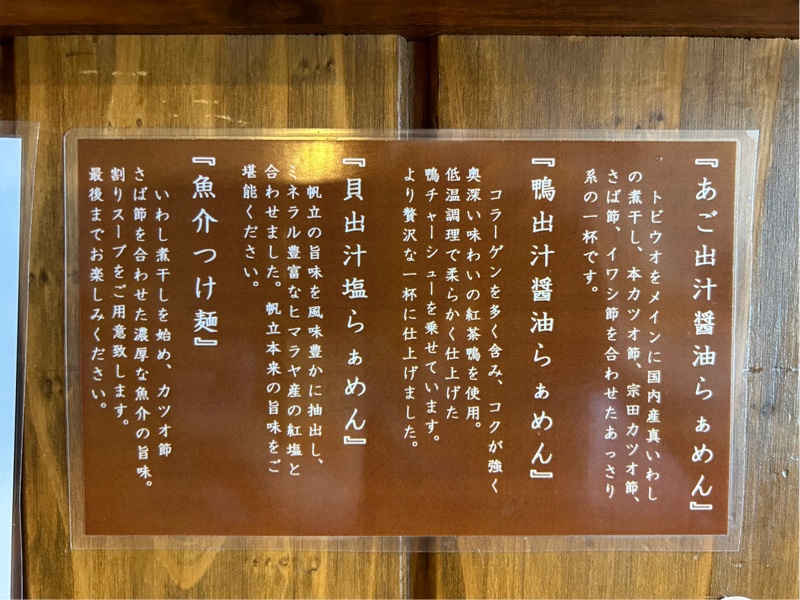 『あご出汁醤油らぁめん』
トビウオをメインに国内産真いわし
の煮干し、本カツオ節、宗田カツオ節、
さば節、イワシ節を合わせたあっさり
系の一杯です。
『鴨出汁醤油らぁめん』
コラーゲンを多く含み、コクが強く
奥深い味わいの紅茶鴨を使用。
低温調理で柔らかく仕上げた
鴨チャーシューを乗せています。
より贅沢な一杯に仕上げました。
『貝出汁塩らぁめん』
帆立の旨味を風味豊かに抽出し、
ミネラル豊富なヒマラヤ産の紅塩と
合わせました。帆立本来の旨味をご
堪能ください。
『魚介つけ麺』
いわし煮干しを始め、カツオ節
さば節を合わせた濃厚な魚介の旨味。
割りスープをご用意致します。
最後までお楽しみください。